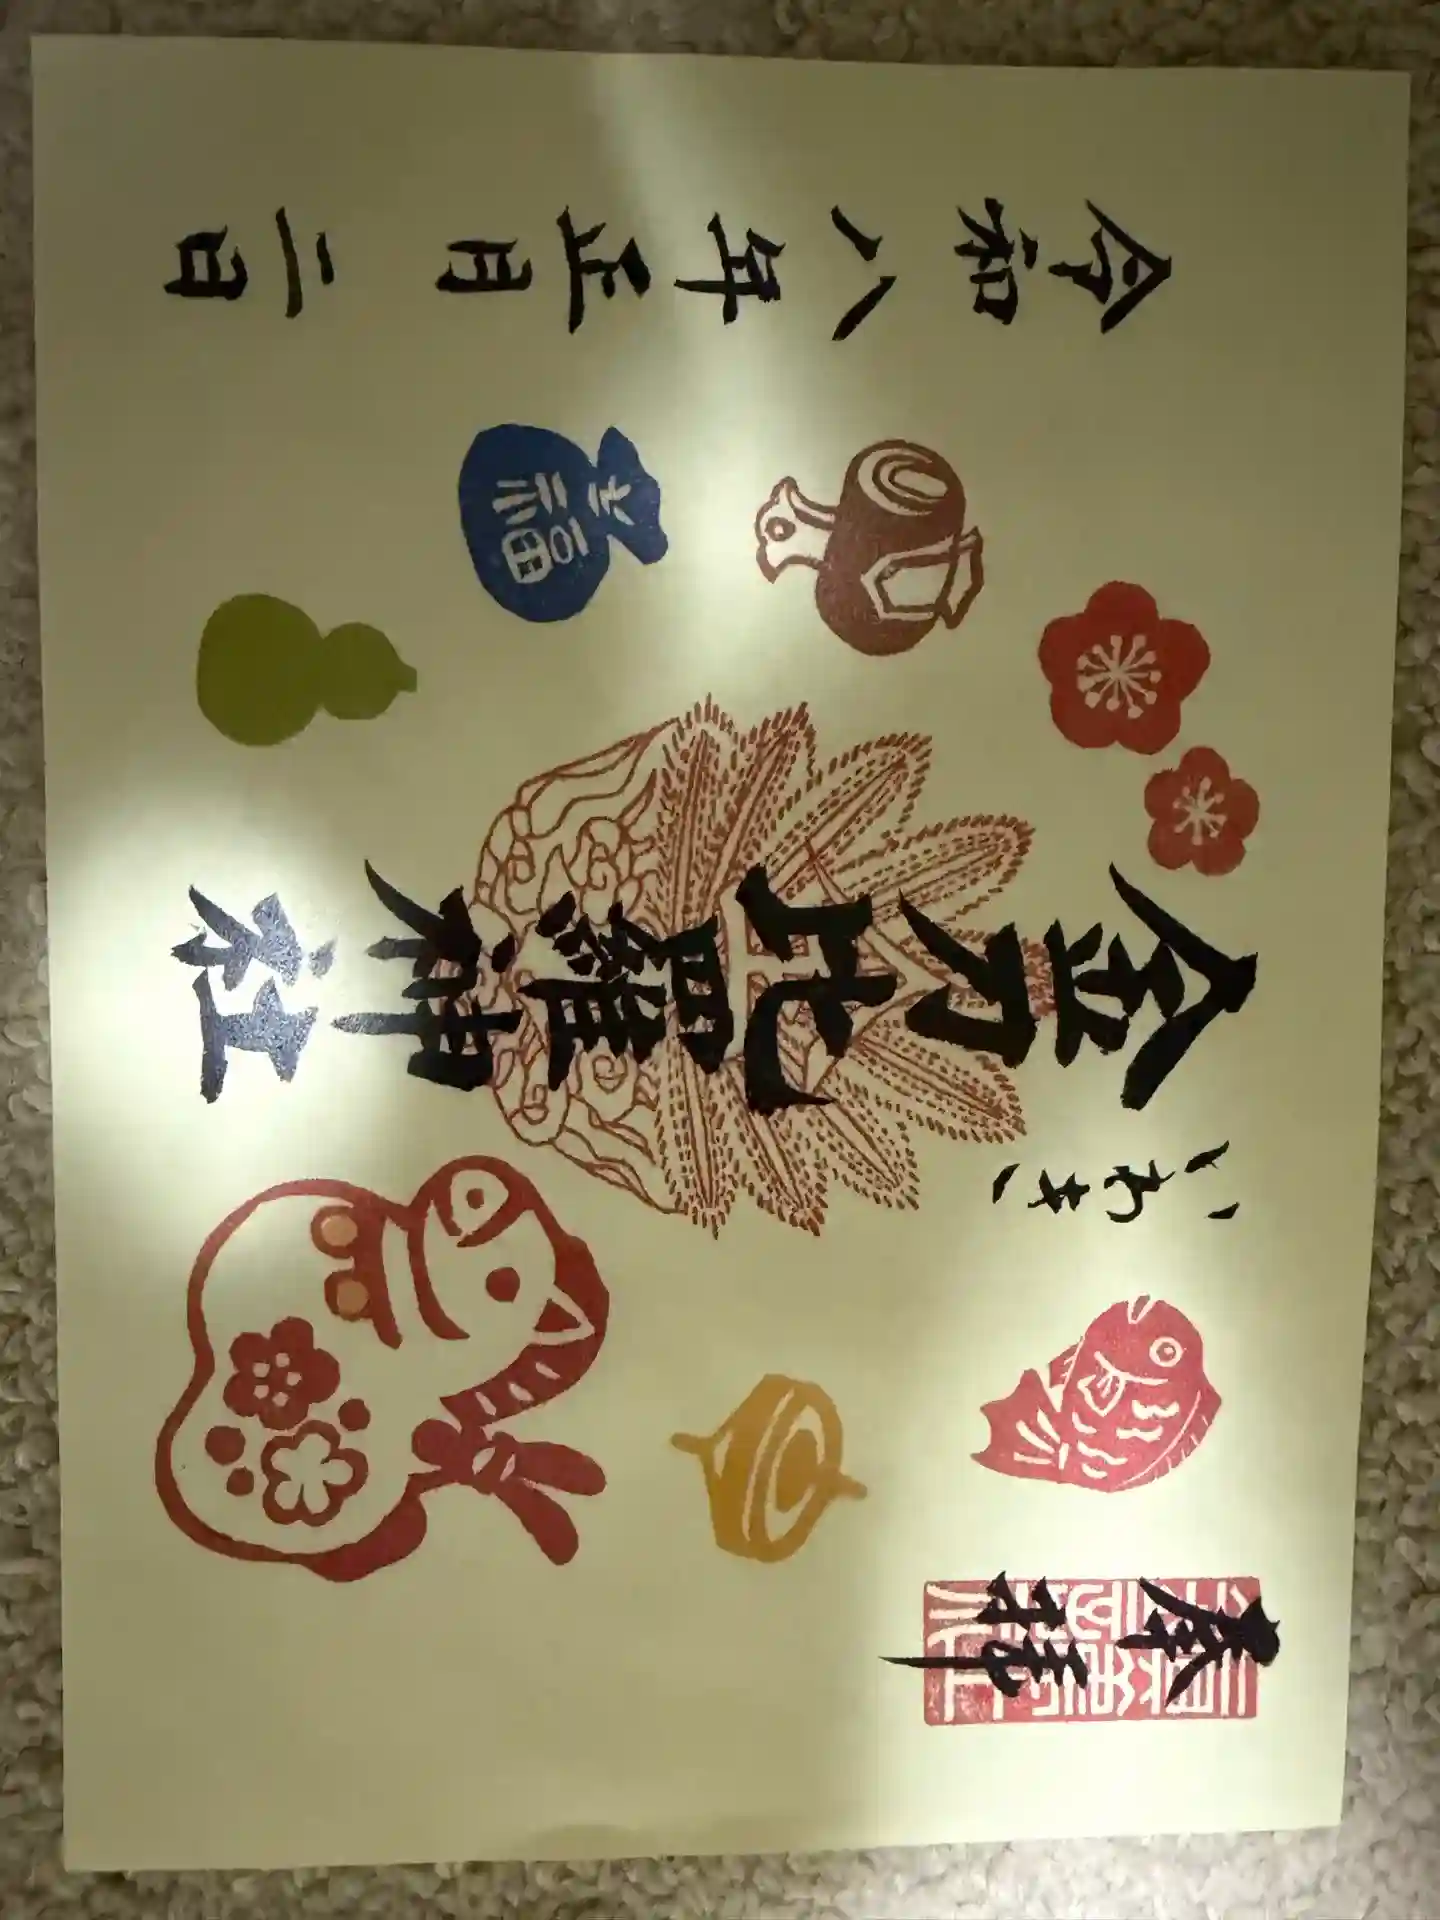 奉拝
いわき
金刀比羅神社
福
令和八年正月二日